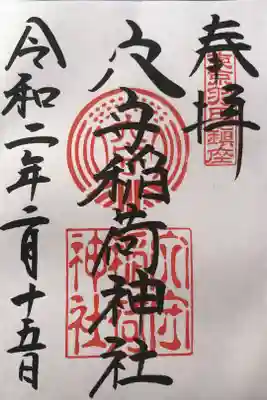 奉拝
東京羽田鎮座
穴守稲荷神社
穴守
稲荷
神社
令和二年二月十五日